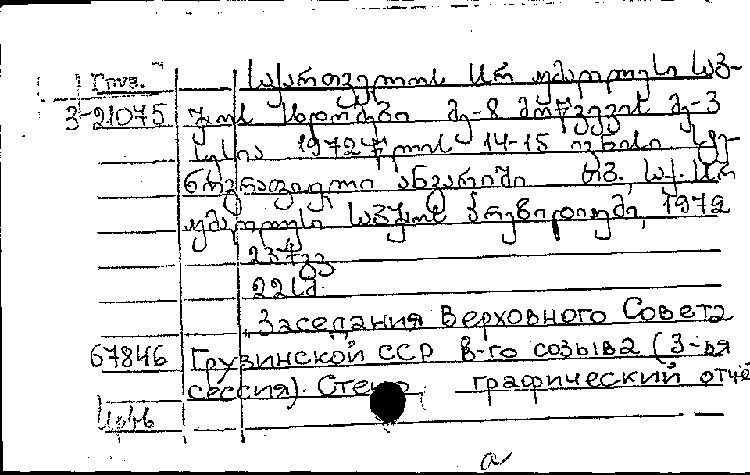 Груз. საქართველოს სსრ უმაღლესი საბ-
3-21075 ჭოს სხდომები მე-8 მოწვევის მე-3
სესია 1972 წლის 14-15 ივნისი სტე-
ნოგრაფიული ანგარიში თბ., საქ. სსრ
უმაღლესი საბჭოს პრეზიდიუმი, 1972
237 გვ
22 სმ
Заседания Верховного Совета
67846 Грузинской ССР 8-го созыва (3-ья
сессия). Стено графический отчё